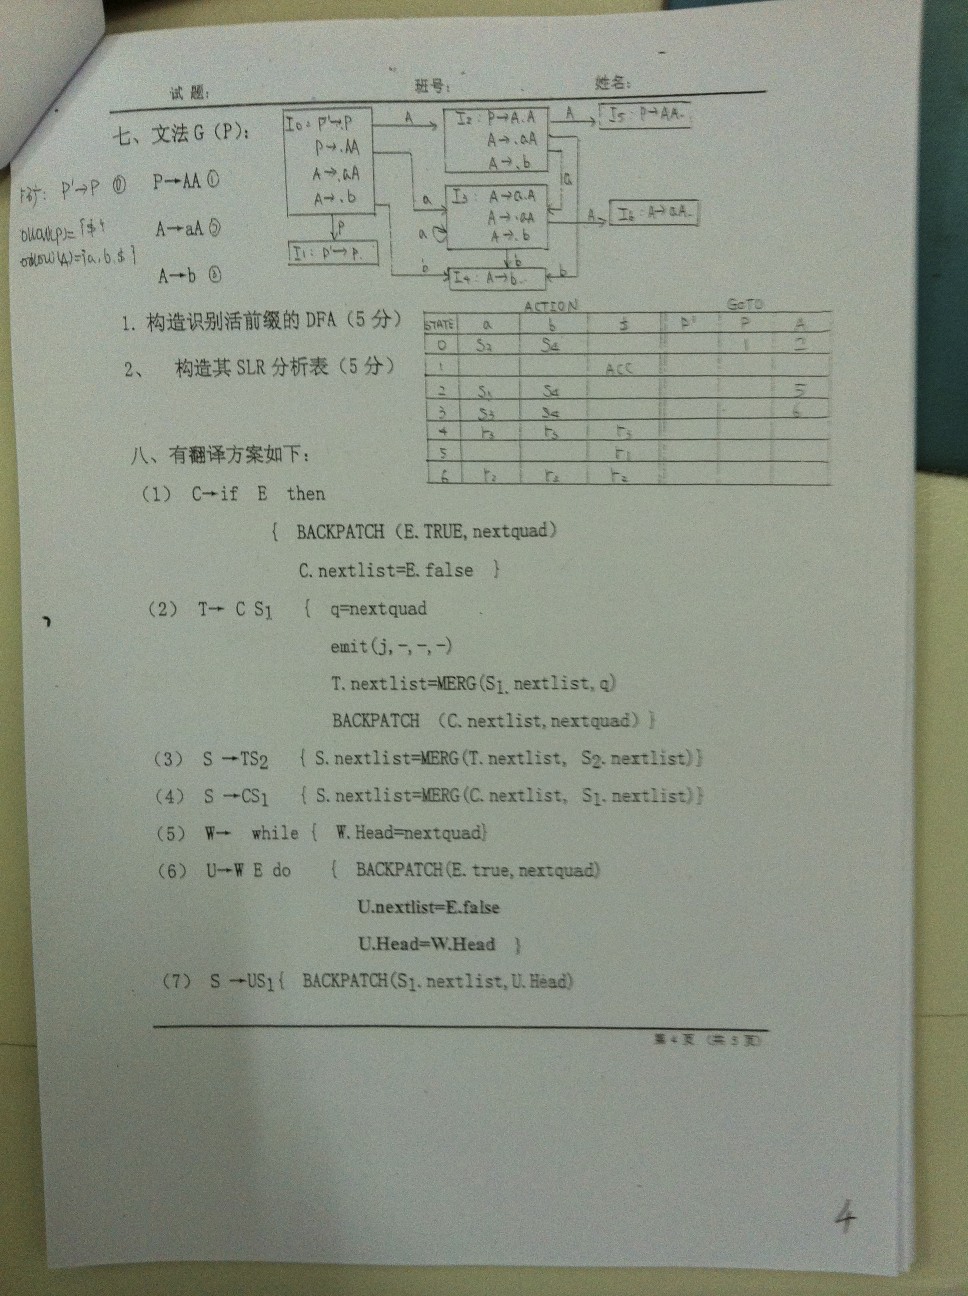 试题: 班号: 姓名:
七、文法G(P):
P→AA ①
A→aA ②
A→b ③
P'→P ⓪
I0: P'→.P
P→.AA
A→.aA
A→.b
I1: P'→P.
I2: P→A.A
A→.aA
A→.b
I3: A→a.A
A→.aA
A→.b
I4: A→b.
I5: P→AA.
I6: A→aA.
A
A
a
a
a
A
P
b
b
b
1. 构造识别活前缀的DFA(5分)
2、 构造其SLR分析表(5分)
ACTION GOTO
STATE a b $ P' P A
0 S3 S4 1 2
1 ACC
2 S3 S4 5
3 S3 S4 6
4 r3 r3 r3
5 r1
6 r2 r2 r2
八、有翻译方案如下:
(1) C→if E then
{ BACKPATCH(E.TRUE,nextquad)
C.nextlist=E.false }
(2) T→ C S1 { q=nextquad
emit(j,-,-,-)
T.nextlist=MERG(S1.nextlist,q)
BACKPATCH (C.nextlist,nextquad)}
(3) S →TS2 { S.nextlist=MERG(T.nextlist, S2.nextlist)}
(4) S →CS1 { S.nextlist=MERG(C.nextlist, S1.nextlist)}
(5) W→ while { W.Head=nextquad}
(6) U→W E do { BACKPATCH(E.true,nextquad)
U.nextlist=E.false
U.Head=W.Head }
(7) S →US1{ BACKPATCH(S1.nextlist,U.Head)
第 4 页 (共 5 页)
4